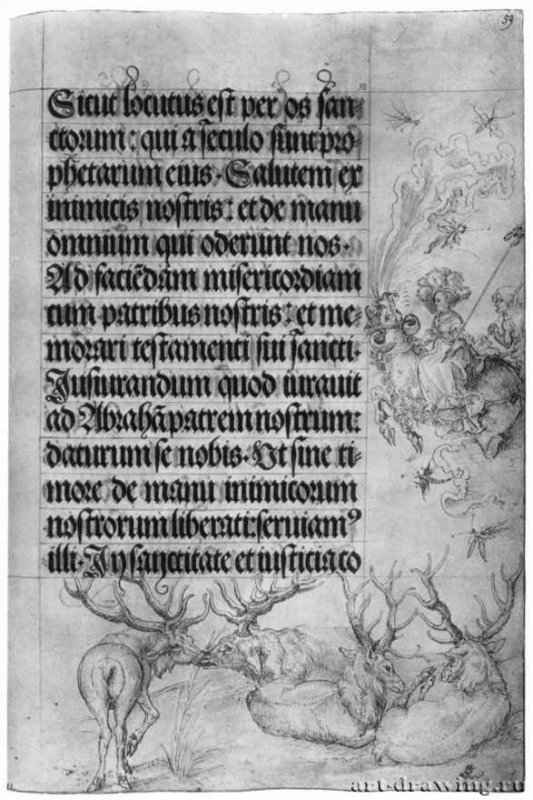 59
Sicut locutus est per os san-
ctorum: qui a seculo sunt pro-
phetarum eius. Salutem ex
inimicis nostris: et de manu
omnium qui oderunt nos.
Ad faciēdam misericordiam
cum patribus nostris: et me-
morari testamenti sui sancti.
Jusiurandum quod iurauit
ad Abrahā patrem nostrum:
daturum se nobis. Ut sine ti-
more de manu inimicorum
nostrorum liberati: seruiamꝰ
illi. In sanctitate et iusticia co
art-drawing.ru